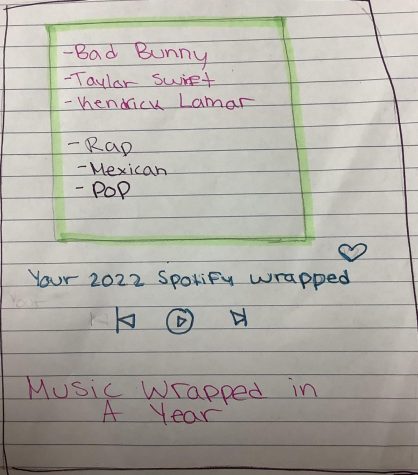 - Bad Bunny
- Taylor Swift
- Kendrick Lamar
- Rap
- Mexican
- POP
Your 2022 Spotify Wrapped
Music Wrapped in
A Year